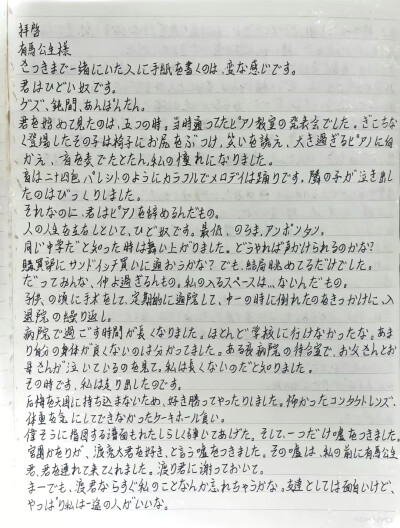 拝啓
有馬公生様
さっきまで一緒にいた人に手紙を書くのは、変な感じです。
君はひどい奴です。
グズ、鈍間、あんぽんたん。
君を始めて見たのは、五つの時。当時通ってたピアノ教室の発表会でした。ぎこちな
く登場したその子は椅子にお尻をぶつけ、笑いを誘え、大き過ぎるピアノに向
かえ、一音を奏でたとたん、私の憧れになりました。
音は二十四色パレットのようにカラフルでメロディは踊りです。隣の子が泣き出し
たのはびっくりしました。
それなのに、君はピアノを辞めるんだもの。
人の人生を左右しといて、ひど奴です。最低、のろま、アンポンタン。
同じ中学だと知った時は舞い上がりました。どうやれば声かけられるのかな？
購買部にサンドイッチ買いに通おうかな？でも、結局眺めてるだけでした。
だってみんな、仲よ過ぎるんもの。私の入るスペースは...ないんだもの。
子供の頃に手術をして、定期的に通院して、中一の時に倒れたのをきっかけに、入
退院の繰り返し。
病院で過ごす時間が長くなりました。ほとんど学校に行けなかったな。あま
り自分の身体が良くないのは分かってました。ある夜病院の待合室で、お父さんとお
母さんが泣いているのを見て。私は長くないのだと知りました。
その時です。私は走り出したのです。
後悔を天国に持ち込まないため、好き勝ってやったりしました。怖かったコンタクトレンズ、
体重を気にしてできなかったケーキホール食い。
偉そうに指図する譜面もわたしらしく弾いてあげた。そして、一つだけ嘘をつきました。
宮園かをりが、渡亮太君を好き、と言う嘘をつきました。その嘘は、私の前に有馬公生
君、君を連れて来てくれました。渡り君に謝っておいて。
まーでも、渡君ならすぐ私のことなんか忘れちゃうかな。友達としては面白いけど、
やっぱり私は一途の人がいいな。